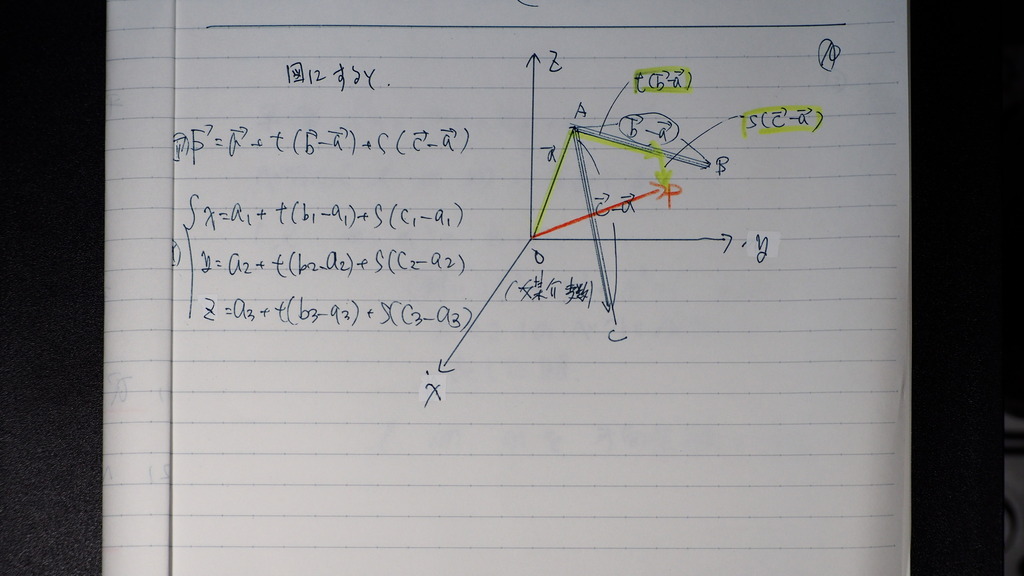 図12 すると.
P⃗ = a⃗ + t(b⃗-a⃗) + s(c⃗-a⃗)
x = a₁ + t(b₁-a₁) + s(c₁-a₁)
y = a₂ + t(b₂-a₂) + s(c₂-a₂)
z = a₃ + t(b₃-a₃) + s(c₃-a₃)
z
t(b⃗-a⃗)
A
b⃗-a⃗
s(c⃗-a⃗)
a⃗
B
P
c⃗-a⃗
y
O
(媒介変数)
C
x